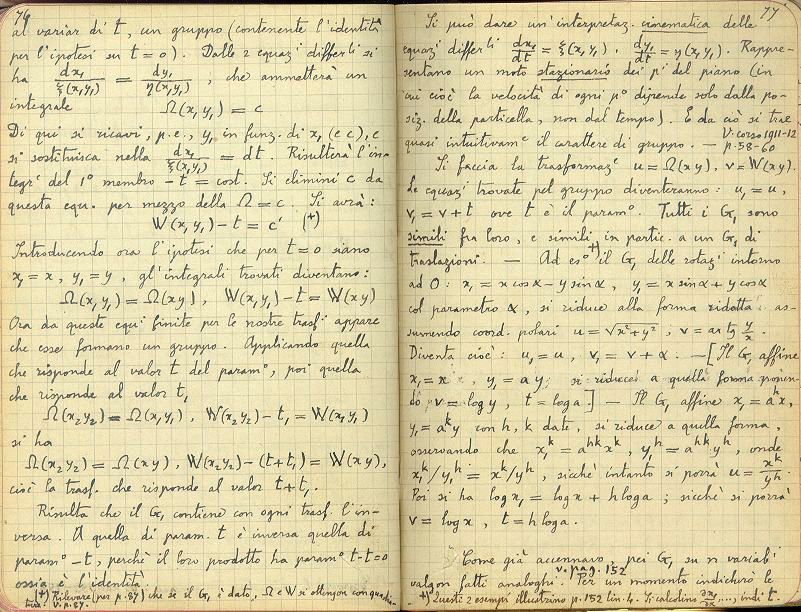 76
al variar di t, un gruppo (contenente l'identità
per l'ipotesi su t=0). Dalle 2 equaz.i differ.li si
ha dx₁/ξ(x₁y₁) = dy₁/η(x₁y₁) , che ammetterà un
integrale Ω(x₁y₁) = c
Di qui si ricavi, p.e., y₁ in funz. di x₁ (e c), e
si sostituisca nella dx₁/ξ(x₁y₁) = dt. Risulterà l'in-
tegr.e del 1° membro - t = cost. Si elimini c da
questa equ. per mezzo della Ω=c. Si avrà:
W(x₁y₁) - t = c' (+)
Introducendo ora l'ipotesi che per t=0 siano
x₁=x, y₁=y, gl'integrali trovati diventano:
Ω(x₁y₁) = Ω(xy), W(x₁y₁) - t = W(xy)
Ora da queste equ.i finite per le nostre trasf.i appare
che esse formano un gruppo. Applicando quella
che risponde al valor t del param.o, poi quella
che risponde al valor t₁
Ω(x₂y₂) = Ω(x₁y₁), W(x₂y₂) - t₁ = W(x₁y₁)
si ha
Ω(x₂y₂) = Ω(xy), W(x₂y₂) - (t+t₁) = W(xy),
cioè la trasf. che risponde al valor t+t₁.
Risulta che il G₁ contiene con ogni trasf. l'in-
versa. A quella di param. t è inversa quella di
param.o -t, perchè il loro prodotto ha param.o t-t=0
ossia è l'identità.
(+) Rilevare (per p.87) che se il G₁ è dato, Ω e W si ottengon con quadra-
tura. V. p.87.
77
Si può dare un'interpretaz. cinematica delle
equaz.i differ.li dx₁/dt = ξ(x₁y₁), dy₁/dt = η(x₁y₁). Rappre-
sentano un moto stazionario dei p.i del piano (in
cui cioè la velocità di ogni p.o dipende solo dalla po-
siz. della particella, non dal tempo). E da ciò si trae
quasi intuitivam.e il carattere di gruppo. — V. corso 1911-12
p. 58-60
Si faccia la trasformaz.e u = Ω(xy), v = W(xy).
Le equaz.i trovate pel gruppo diventeranno: u₁ = u,
v₁ = v+t ove t è il param.o. Tutti i G₁ sono
simili fra loro, e simili in partic. a un G₁ di
traslazioni. — Ad es.o (+) il G₁ delle rotaz.i intorno
ad O: x₁ = x cos α - y sin α, y₁ = x sin α + y cos α
col parametro α, si riduce alla forma ridotta as-
sumendo coord. polari u = √x²+y², v = ar tg y/x.
Diventa cioè: u₁ = u, v₁ = v + α. — [Il G₁ affine
x₁ = x, y₁ = ay; si riduce a quella forma ponen-
do v = log y, t = log a] — Il G₁ affine x₁ = aʰx,
y₁ = aᵏy con h, k date, si riduce a quella forma,
osservando che x₁ᵏ = aʰᵏxᵏ, y₁ʰ = aʰᵏyʰ, onde
x₁ᵏ/y₁ʰ = xᵏ/yʰ, sicchè intanto si porrà u = xᵏ/yʰ.
Poi si ha log x₁ = log x + h log a; sicchè si porrà
v = log x, t = h log a.
Come già accennavo, pei G₁ su n variabi.i
v. pag. 152
valgon fatti analoghi. Per un momento indichiero le
(+) Questi 2 esempi illustrino p.152 lin. 4. Si calcolino ∂x₁/∂x, ..., indi t.